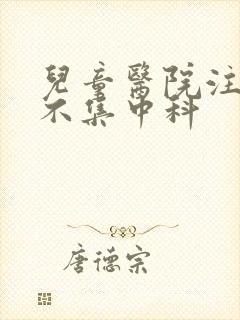 兒童醫院注
不集中科
唐德宗